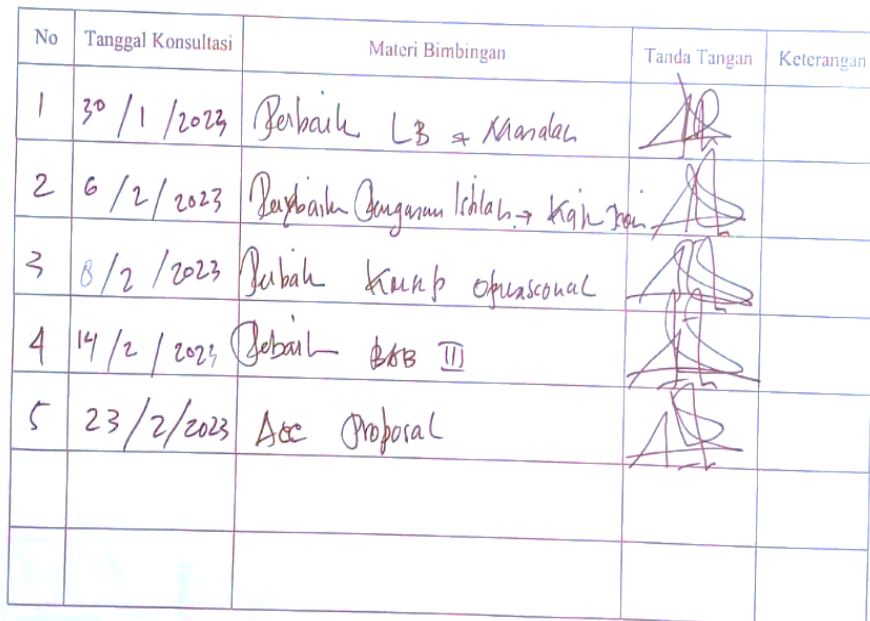 No Tanggal Konsultasi Materi Bimbingan Tanda Tangan Keterangan
1 30/1/2023 Perbaik LB Masalah
2 6/2/2023 Perbaik Istilah → Kaji
3 8/2/2023 Operasional
4 14/2/2023 BAB III
5 23/2/2023 Acc Proposal